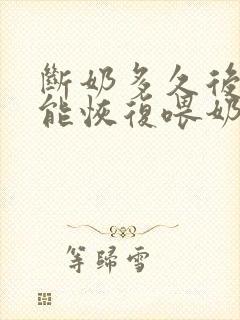 斷奶多久後
能恢復喂奶
等歸雪